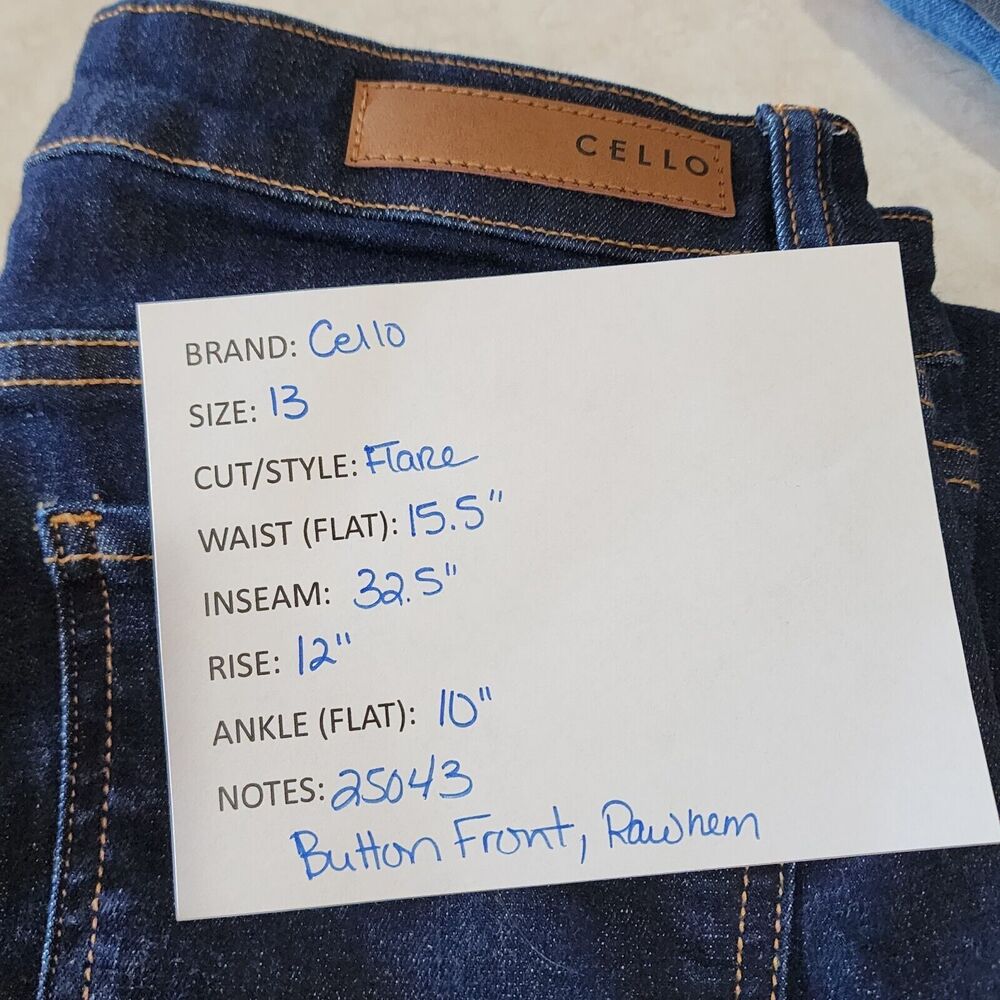 CELLO
BRAND: Cello
SIZE: 13
CUT/STYLE: Flare
WAIST (FLAT): 15.5"
INSEAM: 32.5"
RISE: 12"
ANKLE (FLAT): 10"
NOTES: 25043
Button Front, Rawhem